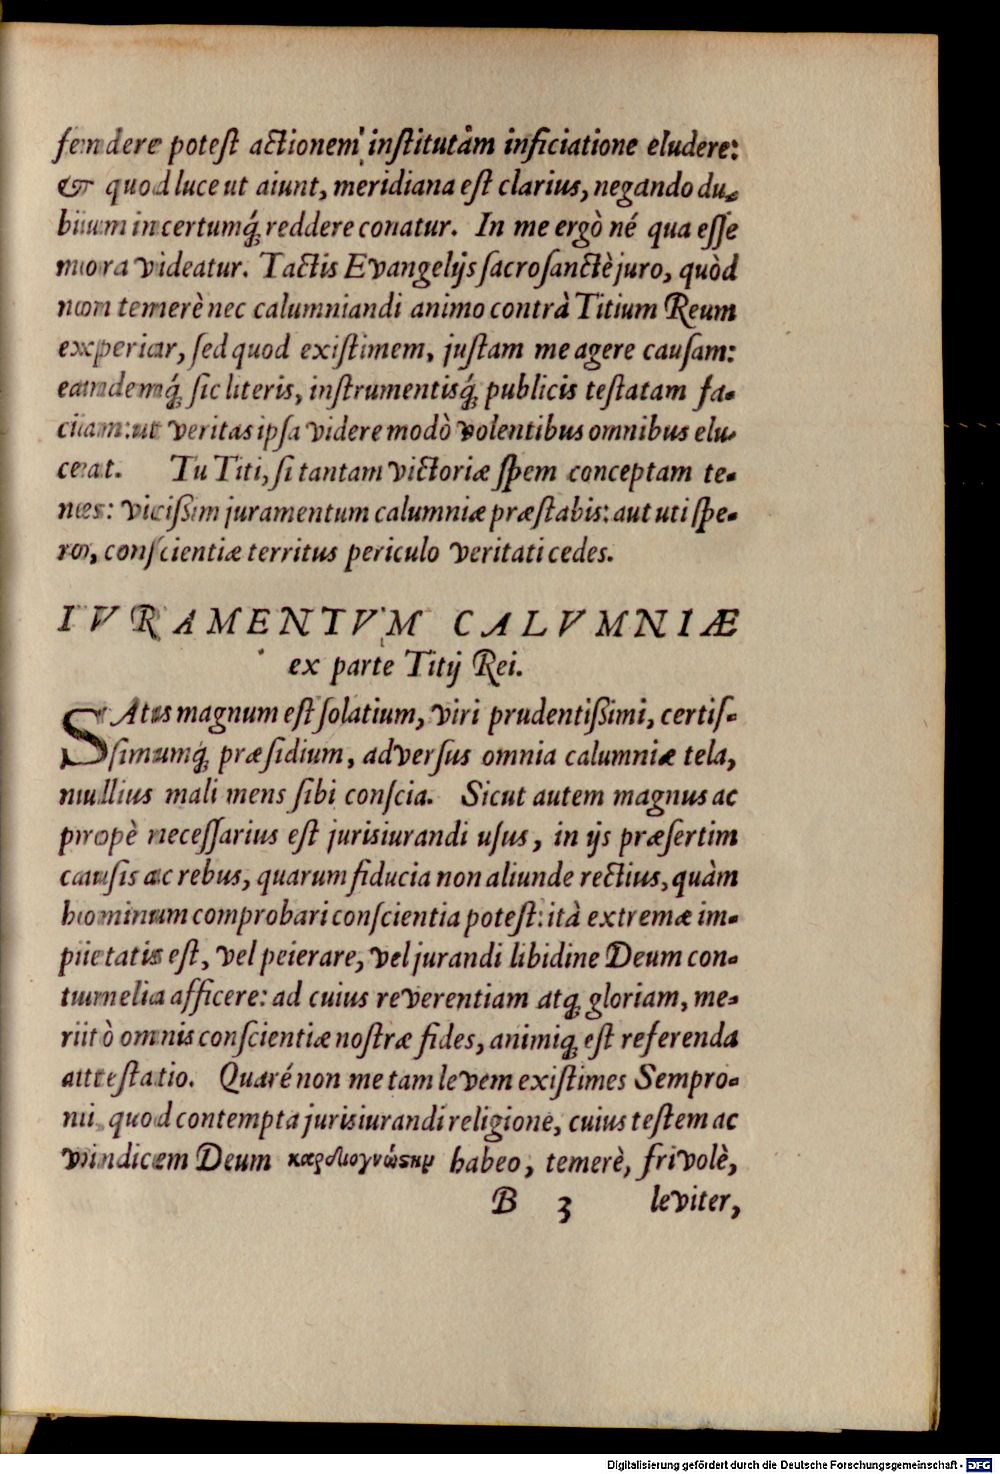 fendere potest actionem institutam inficiatione eludere:
& quod luce ut aiunt, meridiana est clarius, negando du-
bium incertumq́; reddere conatur. In me ergò né qua esse
mora videatur. Tactis Evangelijs sacrosanctè juro, quòd
non temerè nec calumniandi animo contrà Titium Reum
experiar, sed quod existimem, justam me agere causam:
eamdemq́; sic literis, instrumentisq́; publicis testatam fa-
ciam: ut veritas ipsa videre modò volentibus omnibus elu-
ceat. Tu Titi, si tantam victoriæ spem conceptam te-
nes: vicissim juramentum calumniæ præstabis: aut uti spe-
ro, conscientiæ territus periculo veritati cedes.
IVRAMENTVM CALVMNIÆ
ex parte Titij Rei.
SAtis magnum est solatium, viri prudentissimi, certis-
simumq́; præsidium, adversus omnia calumniæ tela,
nullius mali mens sibi conscia. Sicut autem magnus ac
propè necessarius est jurisiurandi usus, in ijs præsertim
causis ac rebus, quarum fiducia non aliunde rectius, quàm
hominum comprobari conscientia potest: ità extremæ im-
pietatis est, vel peierare, vel jurandi libidine Deum con-
tumelia afficere: ad cuius reverentiam atq; gloriam, me-
ritò omnis conscientiæ nostræ fides, animiq; est referenda
attestatio. Quaré non me tam levem existimes Sempro-
nii, quod contempta jurisiurandi religione, cuius testem ac
vindicem Deum καρδιογνώστην habeo, temerè, frivolè,
B 3 leviter,
Digitalisierung gefördert durch die Deutsche Forschungsgemeinschaft - DFG